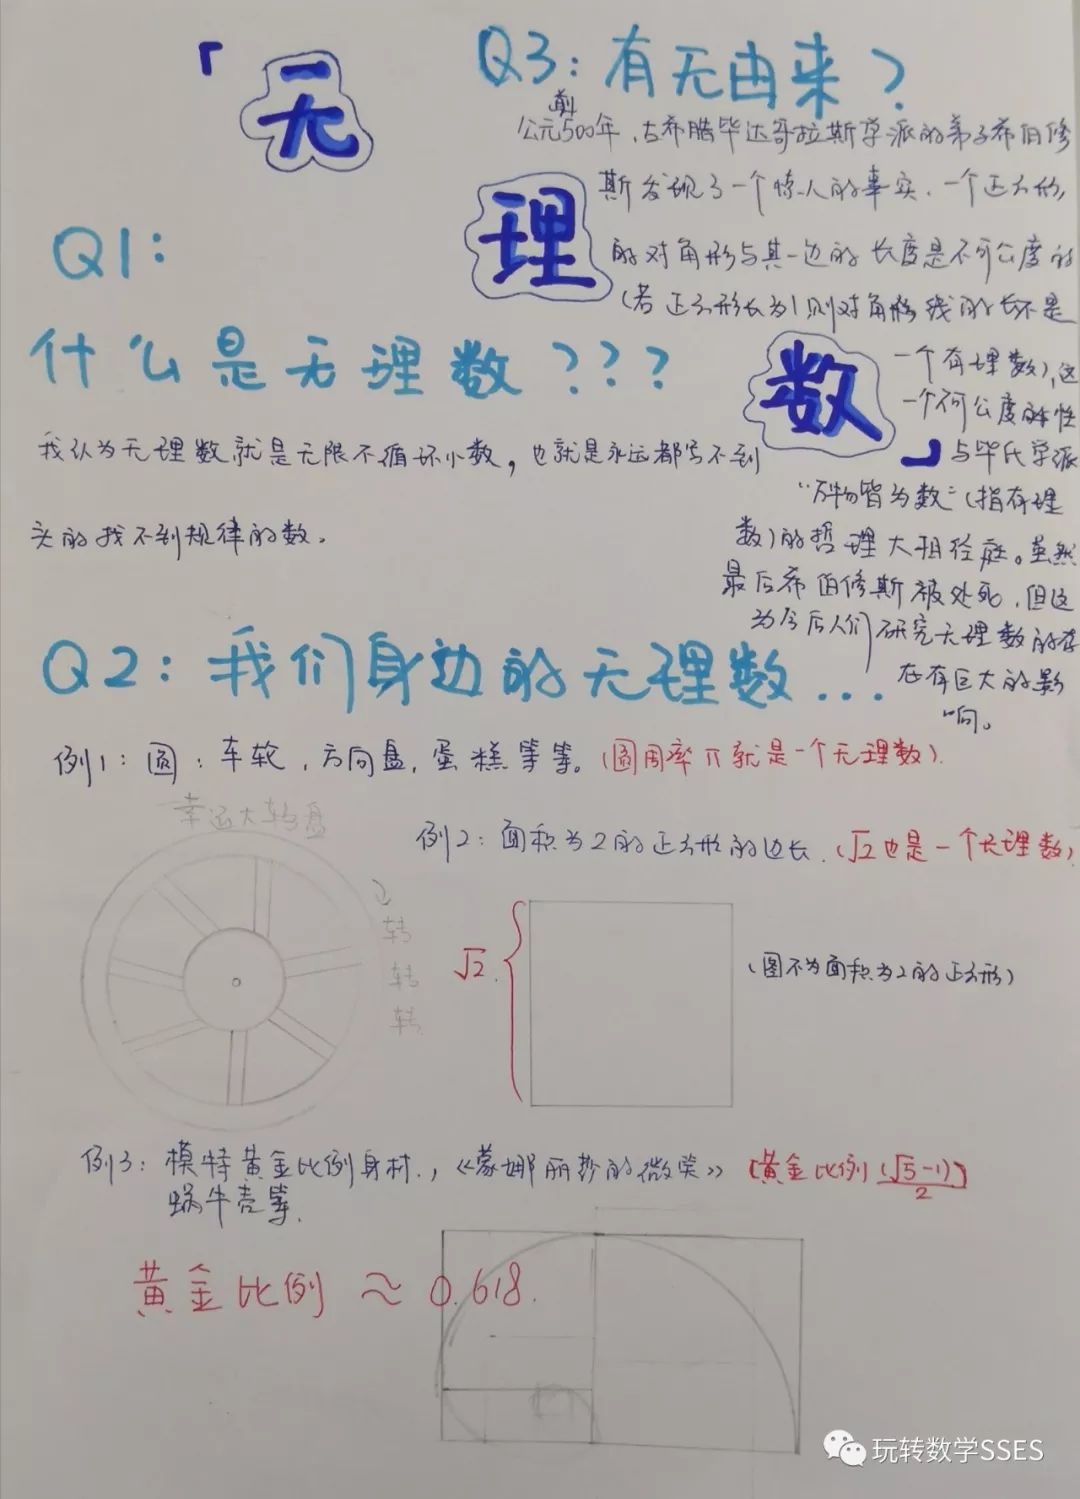 「无
理
数」
Q1:
什么是无理数???
我认为无理数就是无限不循环小数，也就是永远都写不到
头的找不到规律的数。
Q3:有无由来?
公元前500年，古希腊毕达哥拉斯学派的弟子希伯修
斯发现了一个惊人的事实，一个正方形
的对角形与其一边的长度是不可公度的
(若正方形长为1则对角形线的长不是
一个有理数)，这
一个不可公度的性
与毕氏学派
"万物皆为数"(指有理
数)的哲理大相径庭。虽然
最后希伯修斯被处死，但这
为今后人们研究无理数的存
在有巨大的影
响。
Q2:我们身边的无理数...
例1:圆:车轮，方向盘，蛋糕等等。(圆周率π就是一个无理数)
幸运大转盘
转
转
转
例2:面积为2的正方形的边长.(√2也是一个无理数)
√2
(图不为面积为2的正方形)
例3:模特黄金比例身材.，《蒙娜丽莎的微笑》(黄金比例(√5-1)/2)
蜗牛壳等.
黄金比例≈0.618.
玩转数学SSES